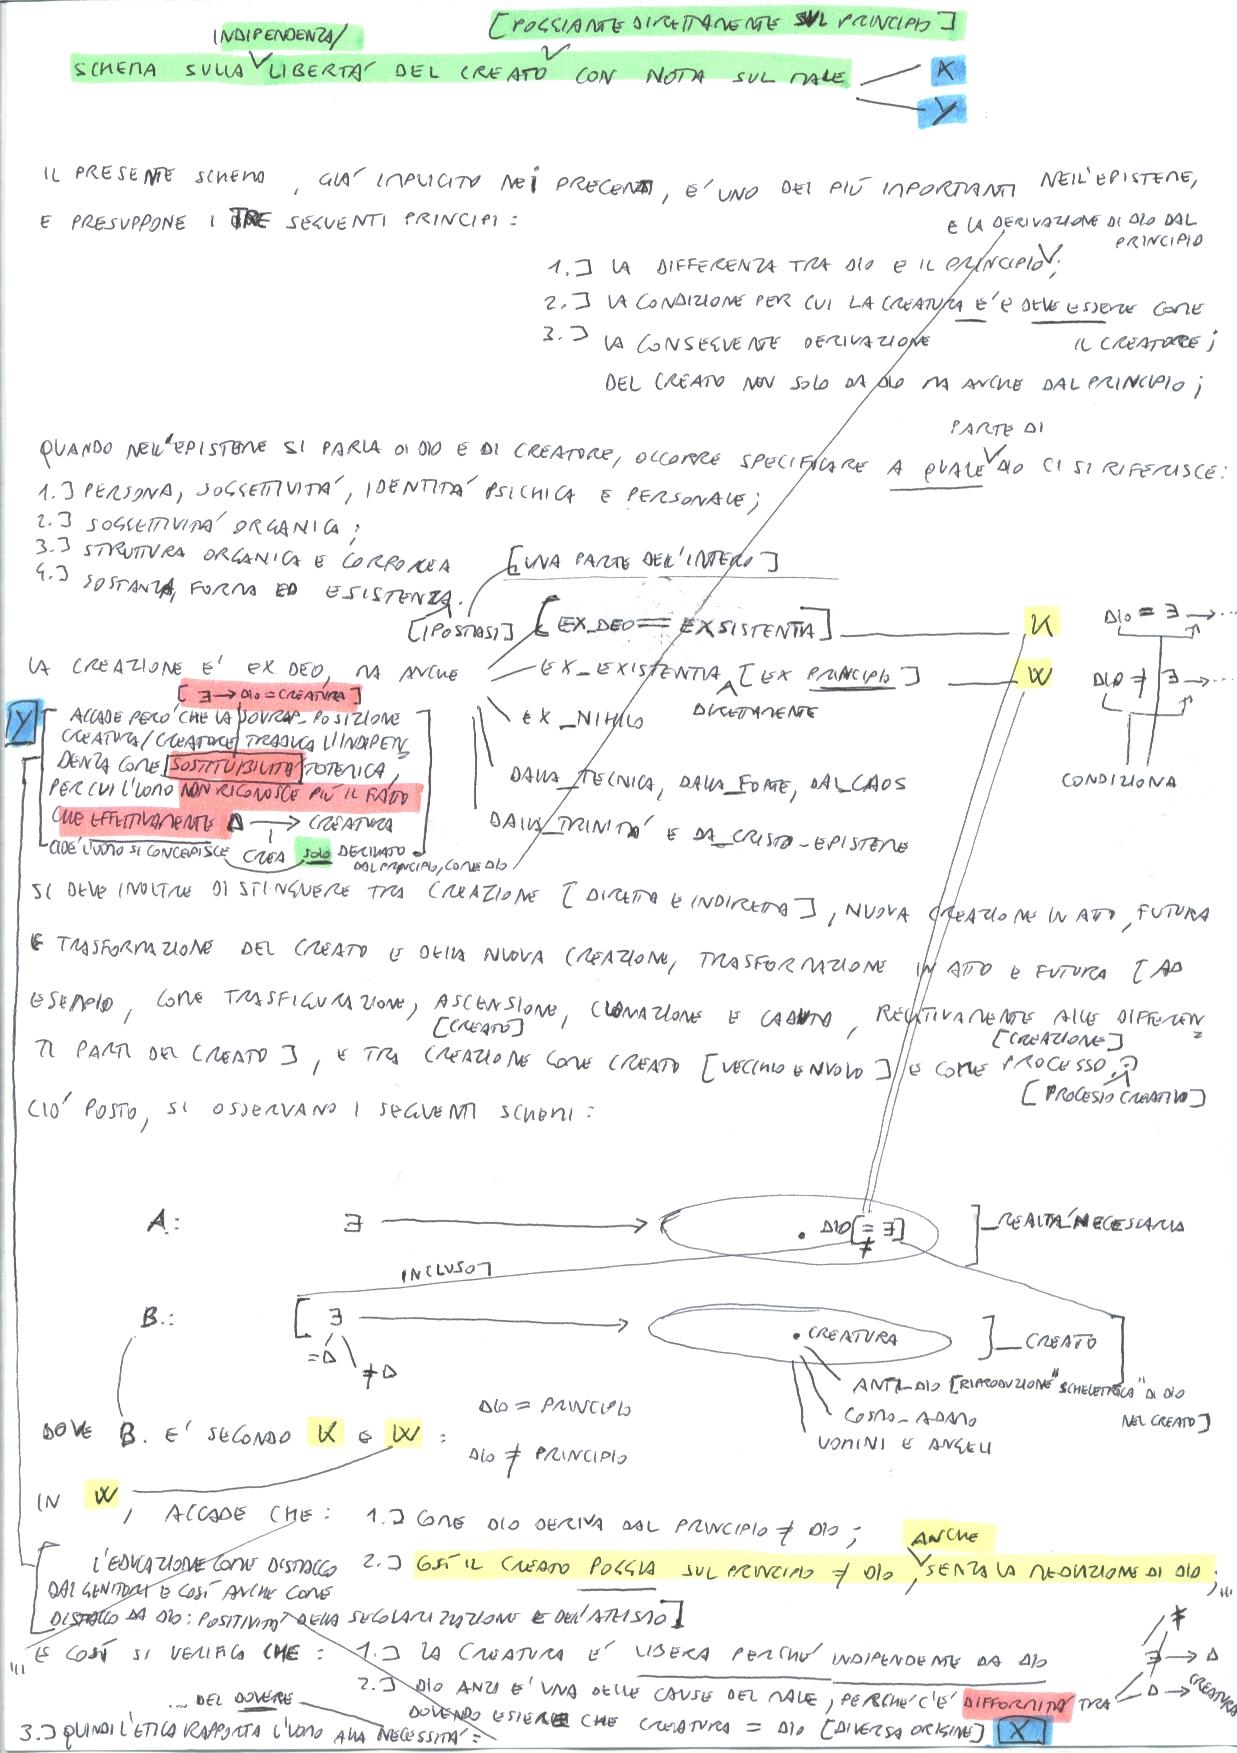 INDIPENDENZA/ [POGGIANTE DIRETTAMENTE SUL PRINCIPIO]
SCHEMA SULLA LIBERTÀ DEL CREATO CON NOTA SUL MALE X
Y
IL PRESENTE SCHEMA, GIÀ IMPLICITO NEI PRECENTI, È UNO DEI PIÙ IMPORTANTI NELL'EPISTEME,
E PRESUPPONE I TRE SEGUENTI PRINCIPI:
E LA DERIVAZIONE DI DIO DAL
PRINCIPIO
1.] LA DIFFERENZA TRA DIO E IL PRINCIPIO;
2.] LA CONDIZIONE PER CUI LA CREATURA È E DEVE ESSERE COME
IL CREATORE;
3.] LA CONSEGUENTE DERIVAZIONE
DEL CREATO NON SOLO DA DIO MA ANCHE DAL PRINCIPIO;
PARTE DI
QUANDO NELL'EPISTEME SI PARLA DI DIO E DI CREATORE, OCCORRE SPECIFICARE A QUALE DIO CI SI RIFERISCE:
1.] PERSONA, SOGGETTIVITÀ, IDENTITÀ PSICHICA E PERSONALE;
2.] SOGGETTIVITÀ ORGANICA;
3.] STRUTTURA ORGANICA E CORPOREA
4.] SOSTANZA, FORMA ED ESISTENZA.
[UNA PARTE DELL'INTERO]
[IPOSTASI] [EX_DEO == EXSISTENTIA] K DIO = ∃ → ...
LA CREAZIONE È EX DEO, MA ANCHE EX_EXISTENTIA [EX PRINCIPIO] W DIO ≠ ∃ → ...
DIRETTAMENTE
EX_NIHILO
CONDIZIONA
DALLA_TECNICA, DALLA_FONTE, DAL_CAOS
DALLA_TRINITÀ E DA_CRISTO-EPISTEME
[∃ → DIO = CREATURA]
Y [ACCADE PERÒ CHE LA SOVRAP_POSIZIONE
CREATURA/CREATORE TRADUCA L'INDIPEN
DENZA COME SOSTITUIBILITÀ TOTEMICA,
PER CUI L'UOMO NON RICONOSCE PIÙ IL FATTO
CHE EFFETTIVAMENTE Δ → CREATURA
CREA
CIOÈ L'UOMO SI CONCEPISCE SOLO DERIVATO
DAL PRINCIPIO, COME DIO
SI DEVE INOLTRE DISTINGUERE TRA CREAZIONE [DIRETTA E INDIRETTA], NUOVA CREAZIONE IN ATTO, FUTURA
E TRASFORMAZIONE DEL CREATO E DELLA NUOVA CREAZIONE, TRASFORMAZIONE IN ATTO E FUTURA [AD
ESEMPIO, COME TRASFIGURAZIONE, ASCENSIONE, CLONAZIONE E CADUTA, RELATIVAMENTE ALLE DIFFEREN
[CREATO] [CREAZIONE]
TI PARTI DEL CREATO], E TRA CREAZIONE COME CREATO [VECCHIO E NUOVO] E COME PROCESSO.
[PROCESSO CREATIVO]
CIÒ POSTO, SI OSSERVANO I SEGUENTI SCHEMI:
A: ∃ → . DIO [= ∃] ] REALTÀ NECESSARIA
≠
INCLUSO
B.: [∃ → . CREATURA ] CREATO
=Δ ≠Δ
ANTI_DIO [RIPRODUZIONE "SCHELETRICA" DI DIO
NEL CREATO]
COSMO-ADAMO
UOMINI E ANGELI
DIO = PRINCIPIO
DOVE B. È SECONDO K E W:
DIO ≠ PRINCIPIO
IN W, ACCADE CHE: 1.] COME DIO DERIVA DAL PRINCIPIO ≠ DIO;
ANCHE
2.] COSÌ IL CREATO POGGIA SUL PRINCIPIO ≠ DIO, SENZA LA MEDIAZIONE DI DIO;
[L'EDUCAZIONE COME DISTACCO
DAI GENITORI E COSÌ ANCHE COME
DISTACCO DA DIO: POSITIVITÀ DELLA SECOLARIZZAZIONE E DELL'ATEISMO]
E COSÌ SI VERIFICA CHE: 1.] LA CREATURA È LIBERA PERCHÉ INDIPENDENTE DA DIO
2.] DIO ANZI È UNA DELLE CAUSE DEL MALE, PERCHÉ C'È DIFFORMITÀ TRA
≠
∃ → Δ
Δ → CREATURA
DOVENDO ESSERE CHE CREATURA = DIO [DIVERSA ORIGINE] X
... DEL DOVERE
3.] QUINDI L'ETICA RAPPORTA L'UOMO ALLA NECESSITÀ